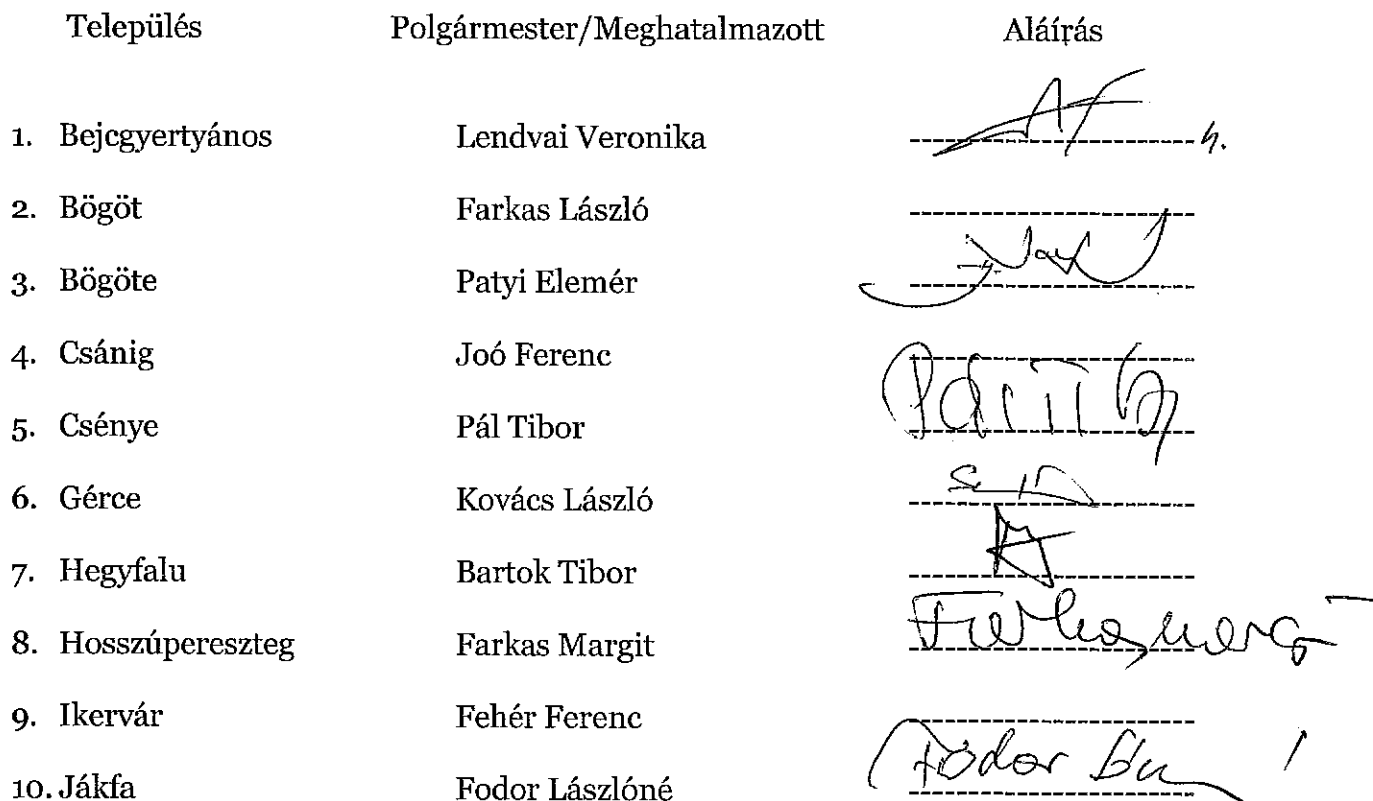 Település Polgármester/Meghatalmazott Aláírás
1. Bejcgyertyános Lendvai Veronika h.
2. Bögöt Farkas László
3. Bögöte Patyi Elemér
4. Csánig Joó Ferenc
5. Csénye Pál Tibor
6. Gérce Kovács László
7. Hegyfalu Bartok Tibor
8. Hosszúpereszteg Farkas Margit
9. Ikervár Fehér Ferenc
10. Jákfa Fodor Lászlóné Fodor